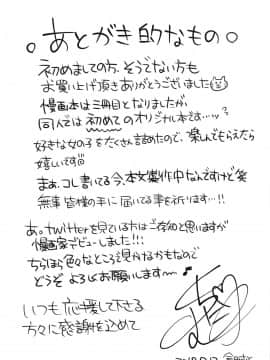 。あとがき的なもの。
初めましての方、そうでない方も
お買い上げ頂きありがとうございました
漫画本は三冊目となりましたが
同人では初めてのオリジナル本です…ッ?
好きな女の子をたくさん詰めたので、楽しんでもらえたら
嬉しいです
まぁ、コレ書いてる今、本文製作中なんですけど笑
無事皆様の手に届いてる事を祈ります…!!
あ。twitterを見ている方はご存知と思いますが
漫画家デビューしました!!
ちらほら色々なところで見かけるかもなので
どうぞよろしくお願いします〜♪
いつも応援して下さる
方々に感謝を込めて